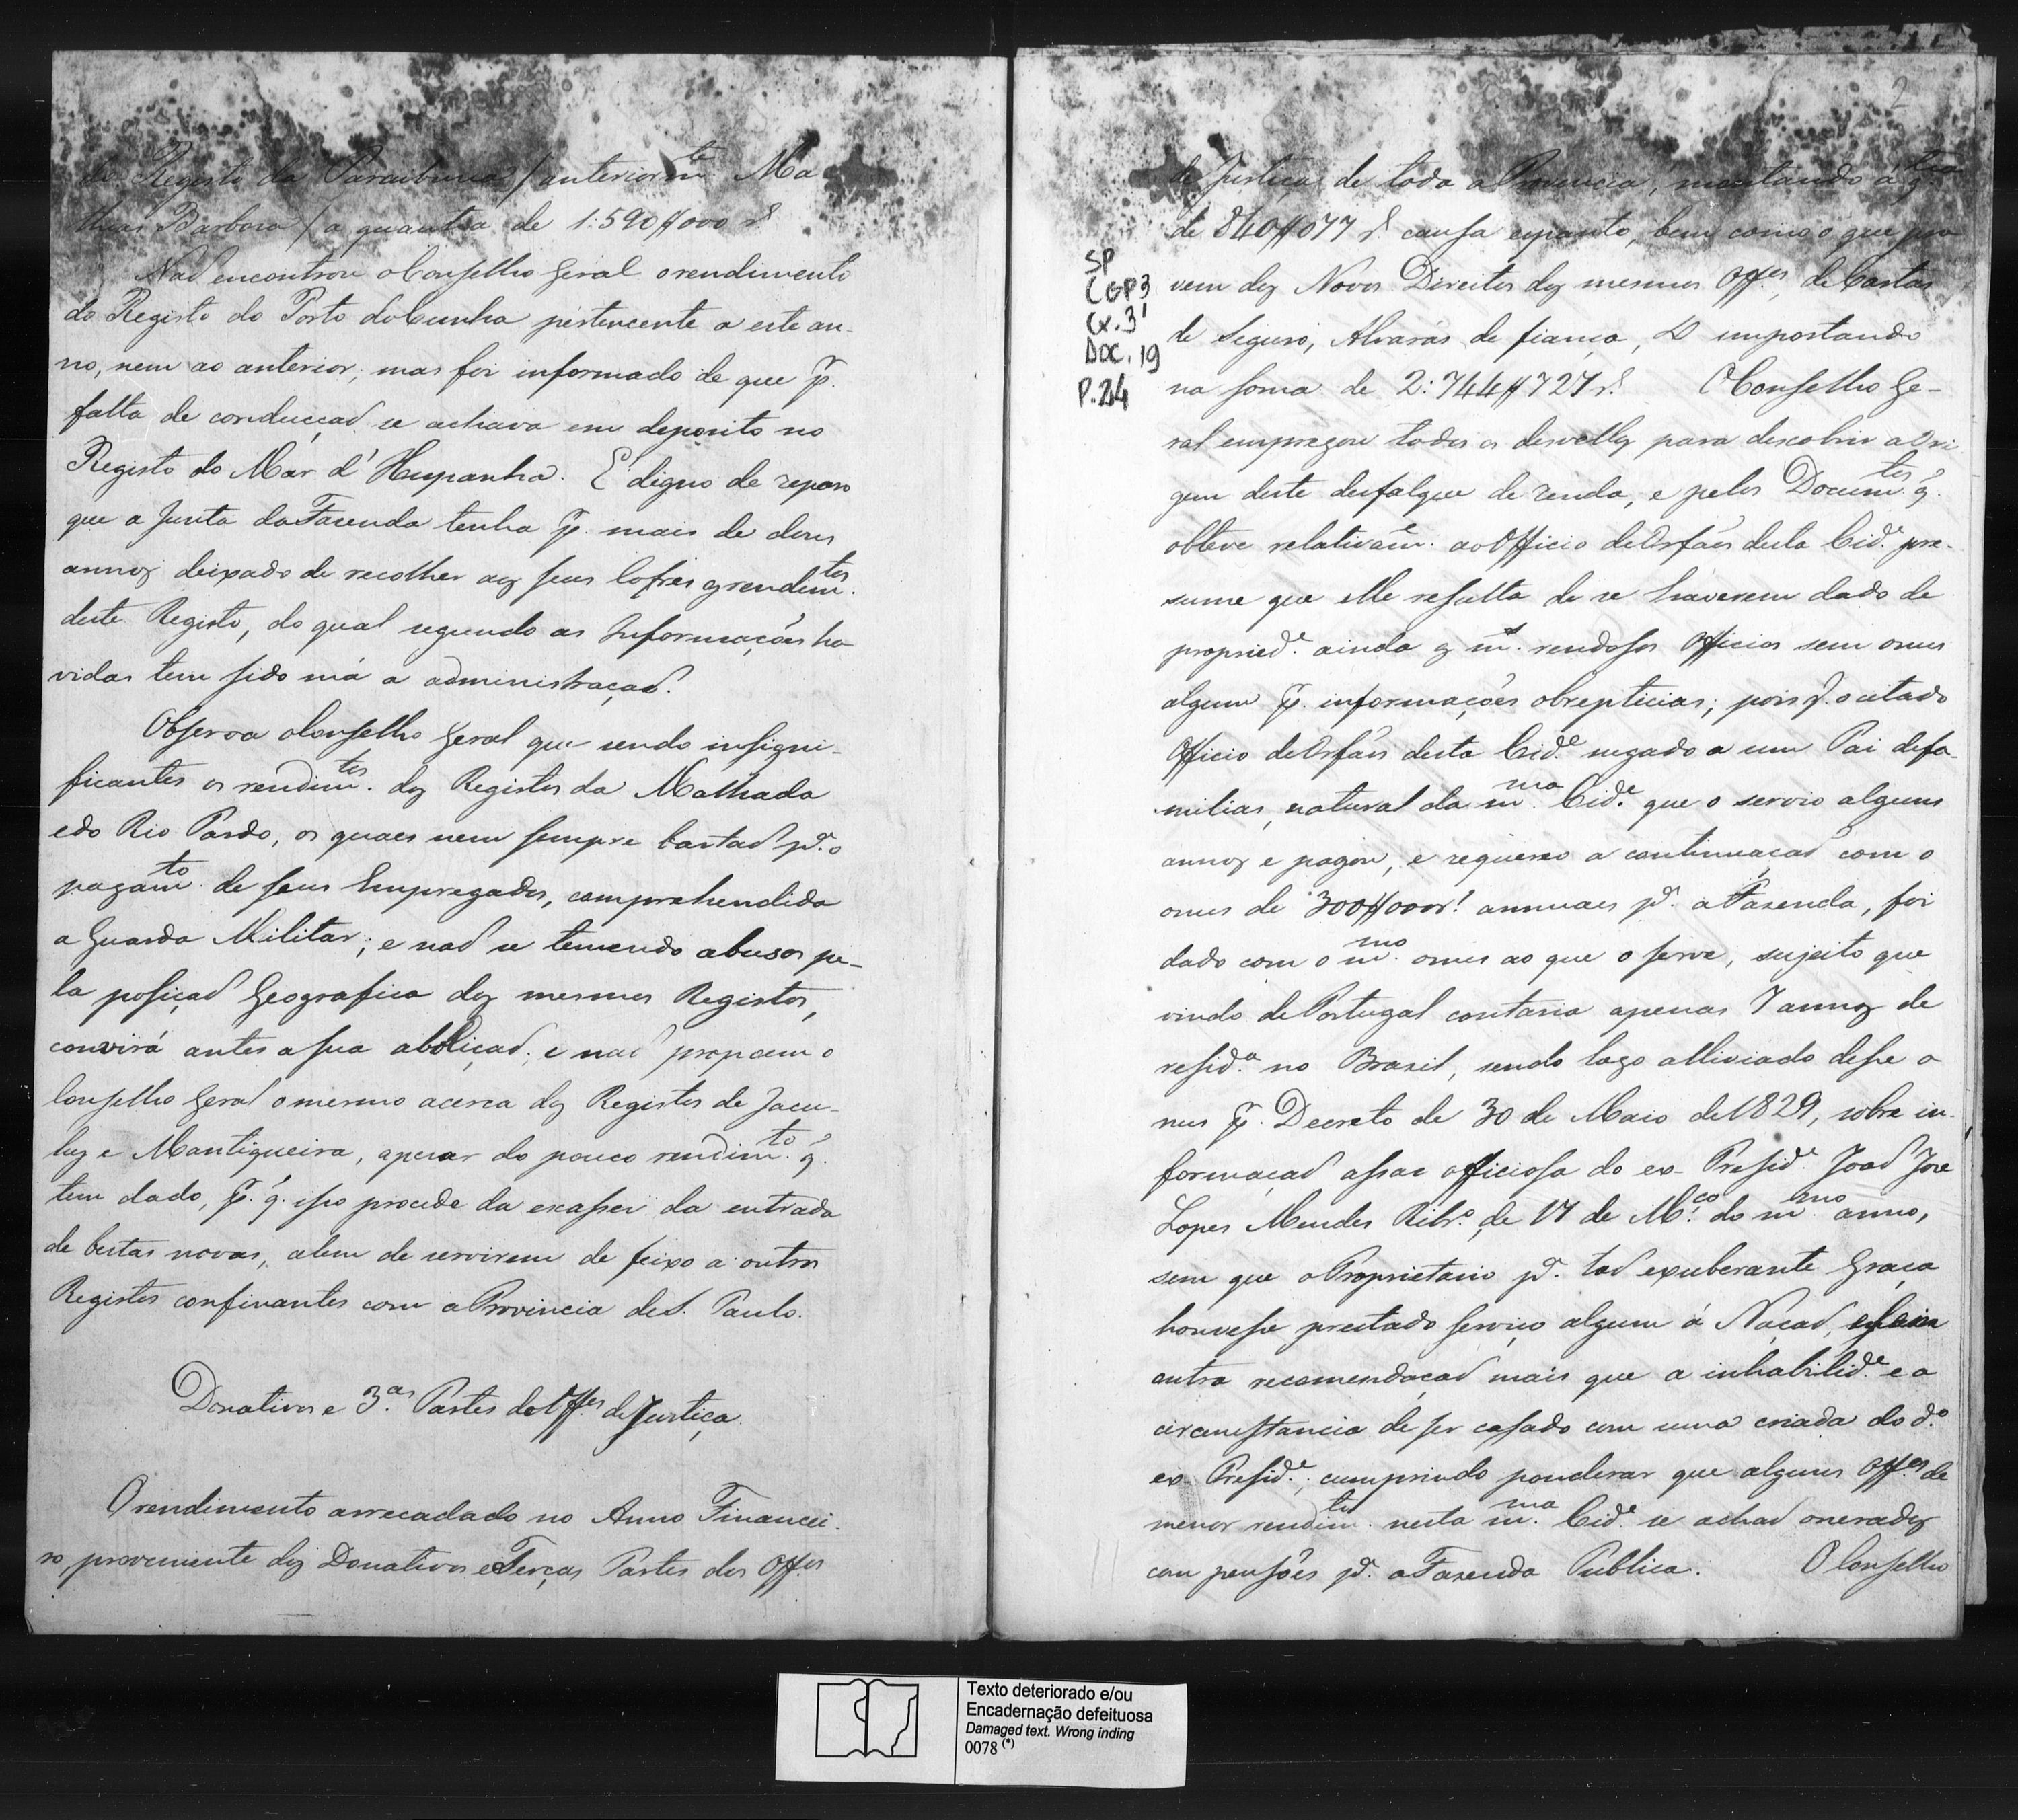 do Registo da Paraibuna / anteriorm.te Ma
thias Barboza / a quantia de 1:590$000 r.s
Naõ encontrou o Conselho Geral o rendimento
do Registo do Porto do Cunha pertencente a este an-
no, nem ao anterior; mas foi informado de que p.
falta de conducçaõ se achava em deposito no
Registo do Mar d'Hespanha. E' digno de reparo
que a Junta da Fazenda tenha p. mais de dous
annos deixado de recolher aos seus Cofres os rendim.tos
deste Registo, do qual segundo as Informações ha-
vidas tem sido má a administraçaõ.
Observa o Conselho Geral que sendo insigni-
ficantes os rendim.tos dos Registos da Malhada
e do Rio Pardo, os quaes nem sempre bastaõ p.a o
pagam.to de seus Empregados, comprehendida
a Guarda Militar; e naõ se temendo abusos pe-
la posiçaõ Geografica dos mesmos Registos,
convirá antes a sua aboliçaõ; e naõ propoem o
Conselho Geral o mesmo acerca dos Registos de Jacu-
hy e Mantiqueira, apezar do pouco rendim.to q.
tem dado, p. q. isso procede da escassez da entrada
de bestas novas, alem de servirem de feixo a outros
Registos confinantes com a Provincia de S. Paulo.
Donativos e 3.as Partes de Off.es de Justiça.
O rendimento arrecadado no Anno Financei-
ro, proveniente dos Donativos e Terças Partes dos Off.os
2
de Justiça de toda a Provincia, montando á q.tia
de 840$077 r.s causa espanto, bem como o que pro-
vem dos Novos Direitos dos mesmos Off.os, de Cartas
de Seguro, Alvarás de fiança, & importando
na soma de 2:744$727 r.s O Conselho Ge-
ral empregou todos os desvellos para descobrir a ori-
gem deste desfalque de renda, e pelos Docum.tos q.
obteve relativam.e ao Officio de Orfãos desta Cid.e pre-
sume que elle resulta de se haverem dado de
propried.e ainda os m.s rendosos Officios sem onus
algum p. informações obrepticias; pois q. o citado
Officio de Orfãos desta Cid.e negado a um Pai de fa-
milias, natural da m.ma Cid.e que o servio alguns
annos e pagou, e requereo a continuaçaõ com o
onus de 300$000 r.s annuaes p.a a Fazenda, foi
dado com o m.mo onus ao que o serve, sujeito que
vindo de Portugal contaria apenas 7 annos de
resid.a no Brazil, sendo logo alliviado desse o-
nus p. Decreto de 30 de Maio de 1829, sobre in-
formaçaõ assas officiosa do ex-Presid.e Joaõ Jose
Lopes Mendes Ribr.o, de 17 de M.ço do m.mo anno,
sem que o Proprietario p.a taõ exuberante Graça
houvesse prestado serviço algum á Naçaõ,
outra recomendaçaõ mais que a inhabilid.e e a
circumstancia de ser casado com uma criada do d.o
ex-Presid.e; cumprindo ponderar que alguns Off.os de
menor rendim.to nesta m.ma Cid.e se achaõ onerados
com pensões p.a a Fazenda Publica. O Conselho
SP
CGP3
Cx. 3
Doc. 19
P. 24
Texto deteriorado e/ou
Encadernação defeituosa
Damaged text. Wrong inding
0078 (*)